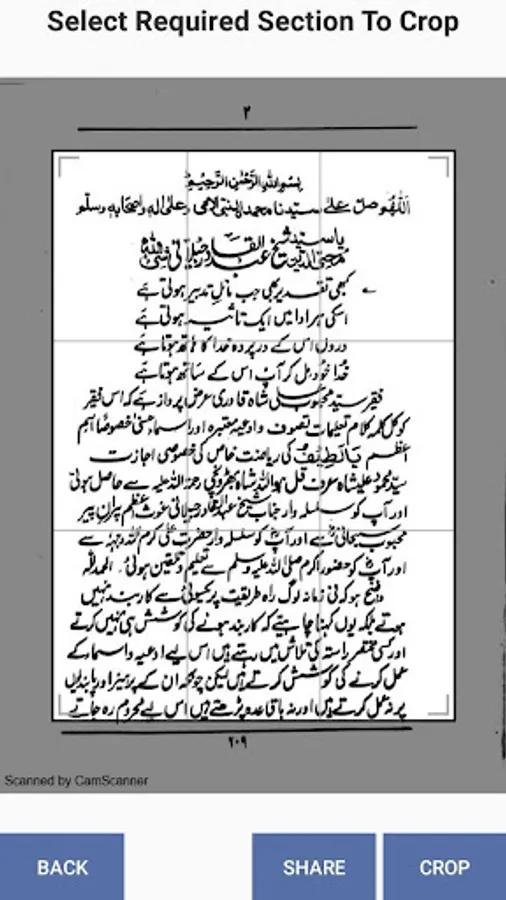 Select Required Section To Crop
۲
بسم الله الرحمن الرحيم
اللهم صل على سيدنا محمد النبي الامي وعلى اله واصحابه وسلم
يا سيد شيخ عبد القادر جيلاني
محي الدين
کبھی تقدیر بھی جب مائل تدبیر ہوتی ہے
اسکی ہر ادا میں ایک تاثیر ہوتی ہے
اس کے در پردہ خدا کا ہاتھ ہوتا ہے
خدا خود مل کر آپ اس کے ساتھ ہوتا ہے
فقیر سید محبوب علی شاہ قادری عرض پرداز ہے کہ اس فقیر
کو کل کلام تعلیمات تصوف و ادعیہ معتبرہ اور اسماء حسنیٰ خصوصاً اسم
اعظم یا لطیف کی ریاضت خاص کی خصوصی اجازت
سید محمود علیشاہ معرف شاہ رحمۃ اللہ علیہ سے حاصل ہوئی
اور آپ کو سلسلہ وار جناب شیخ عبد القادر جیلانی غوث اعظم پیران پیر
محبوب سبحانی سے اور آپ کو سلسلہ وار حضرت علی کرم اللہ وجہہ سے
اور آپ کو حضور اکرم صلی اللہ علیہ وسلم سے تعلیم و تلقین ہوئی۔ الحمد للہ
واضح ہو کہ فی زمانہ لوگ راہ طریقت پر سے کاربند نہیں
ہوتے بلکہ یوں کہنا چاہیئے کہ کاربند ہونے کی کوشش ہی نہیں کرتے
اور کسی مختصر راستہ کی تلاش میں رہتے ہیں اس لیے ادعیہ و اسماء کے
عمل کرنے کی کوشش کرتے ہیں لیکن چونکہ ان کے پرہیز اور پابندیوں
پر نہ عمل کرتے ہیں اور نہ باقاعدہ پڑھتے ہیں اس لیے محروم رہ جاتے
۲۰۹
Scanned by CamScanner
BACK
SHARE
CROP